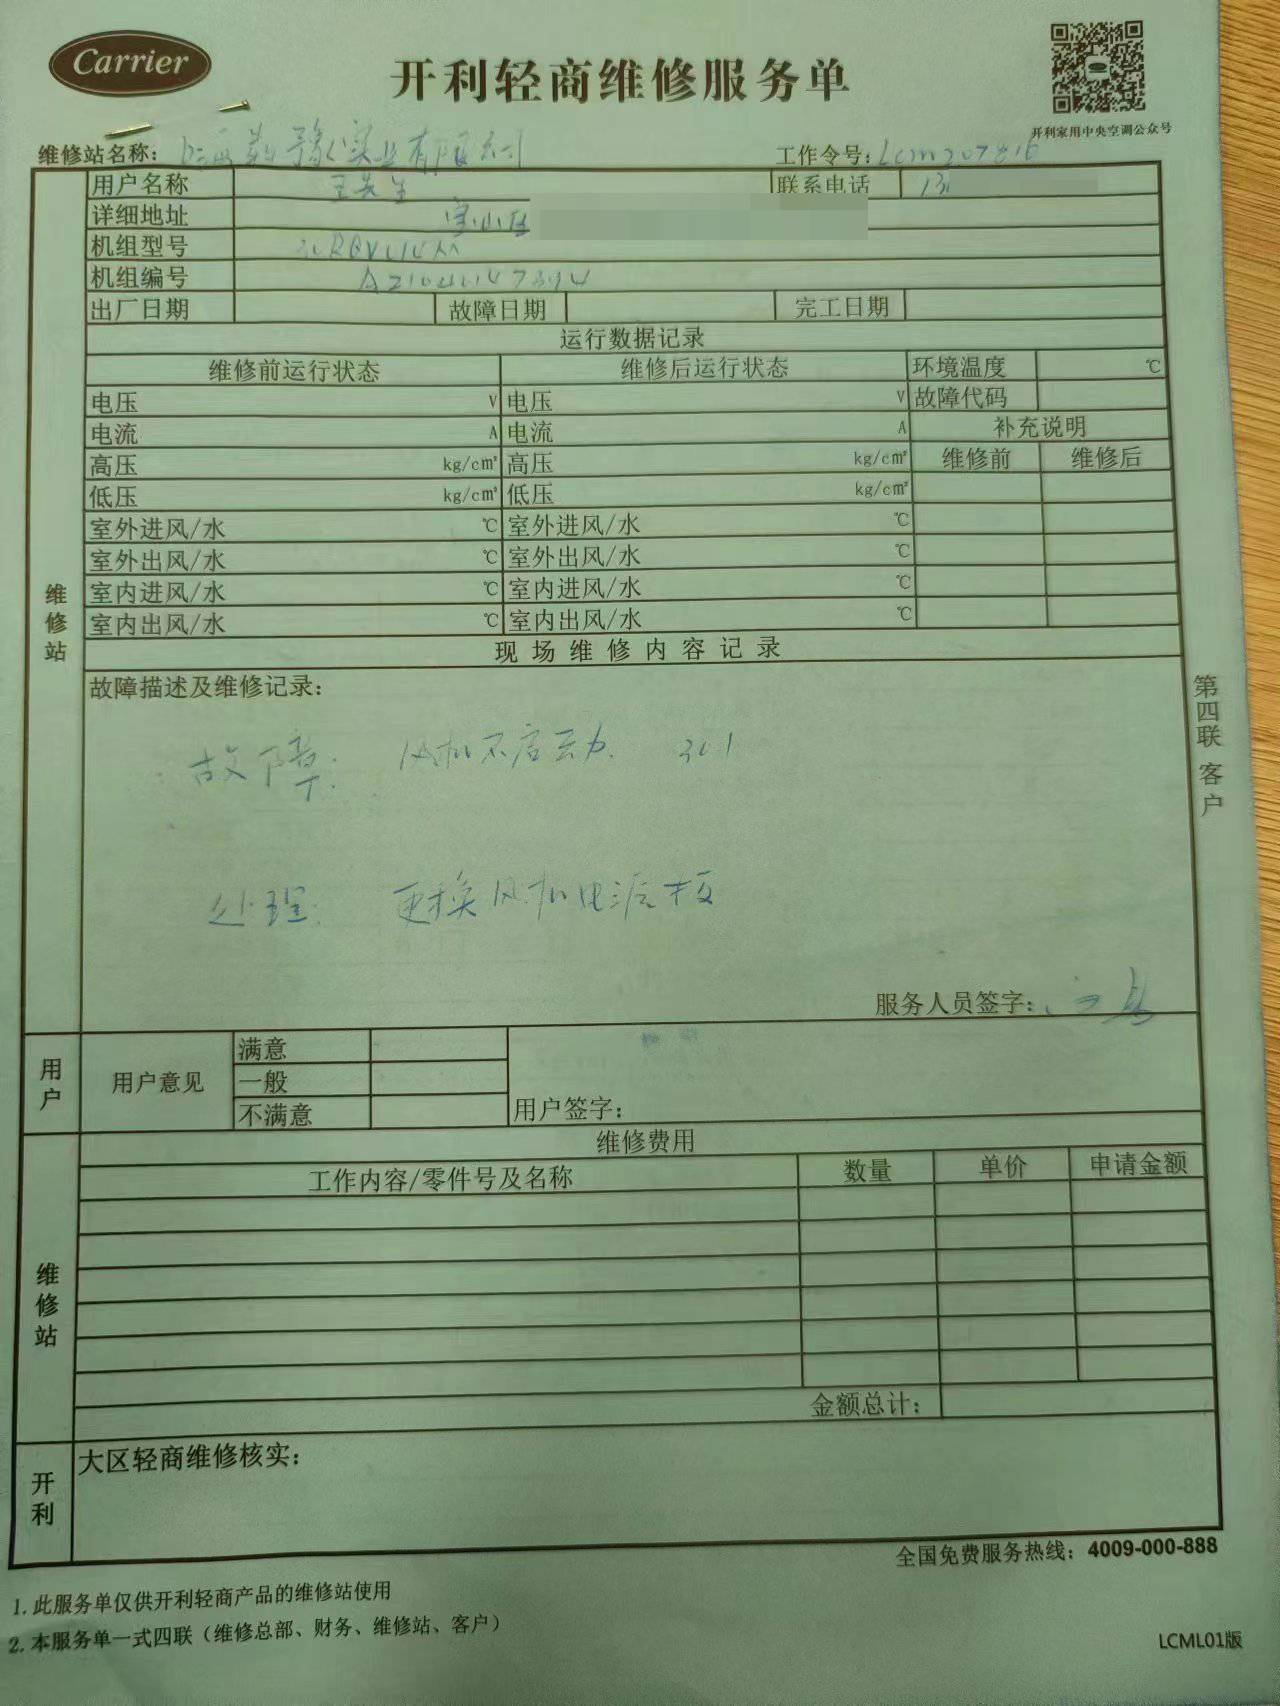 Carrier
开利轻商维修服务单
开利家用中央空调公众号
维修站名称： 实业有限公司 工作令号：Lcm207816
用户名称 王先生 联系电话 13
详细地址 宝山区
机组型号
机组编号
出厂日期 故障日期 完工日期
运行数据记录
维修前运行状态 维修后运行状态 环境温度 ℃
电压 V 电压 V 故障代码
电流 A 电流 A 补充说明
高压 kg/cm² 高压 kg/cm² 维修前 维修后
低压 kg/cm² 低压 kg/cm²
室外进风/水 ℃ 室外进风/水 ℃
室外出风/水 ℃ 室外出风/水 ℃
室内进风/水 ℃ 室内进风/水 ℃
室内出风/水 ℃ 室内出风/水 ℃
维修站
现场维修内容记录
故障描述及维修记录：
故障： 风机不启动.
处理： 更换风机电源板
服务人员签字：
第四联 客户
用户
用户意见
满意
一般
不满意
用户签字：
维修费用
工作内容/零件号及名称 数量 单价 申请金额
维修站
金额总计：
开利
大区轻商维修核实：
全国免费服务热线：4009-000-888
1. 此服务单仅供开利轻商产品的维修站使用
2. 本服务单一式四联（维修总部、财务、维修站、客户）
LCML01版